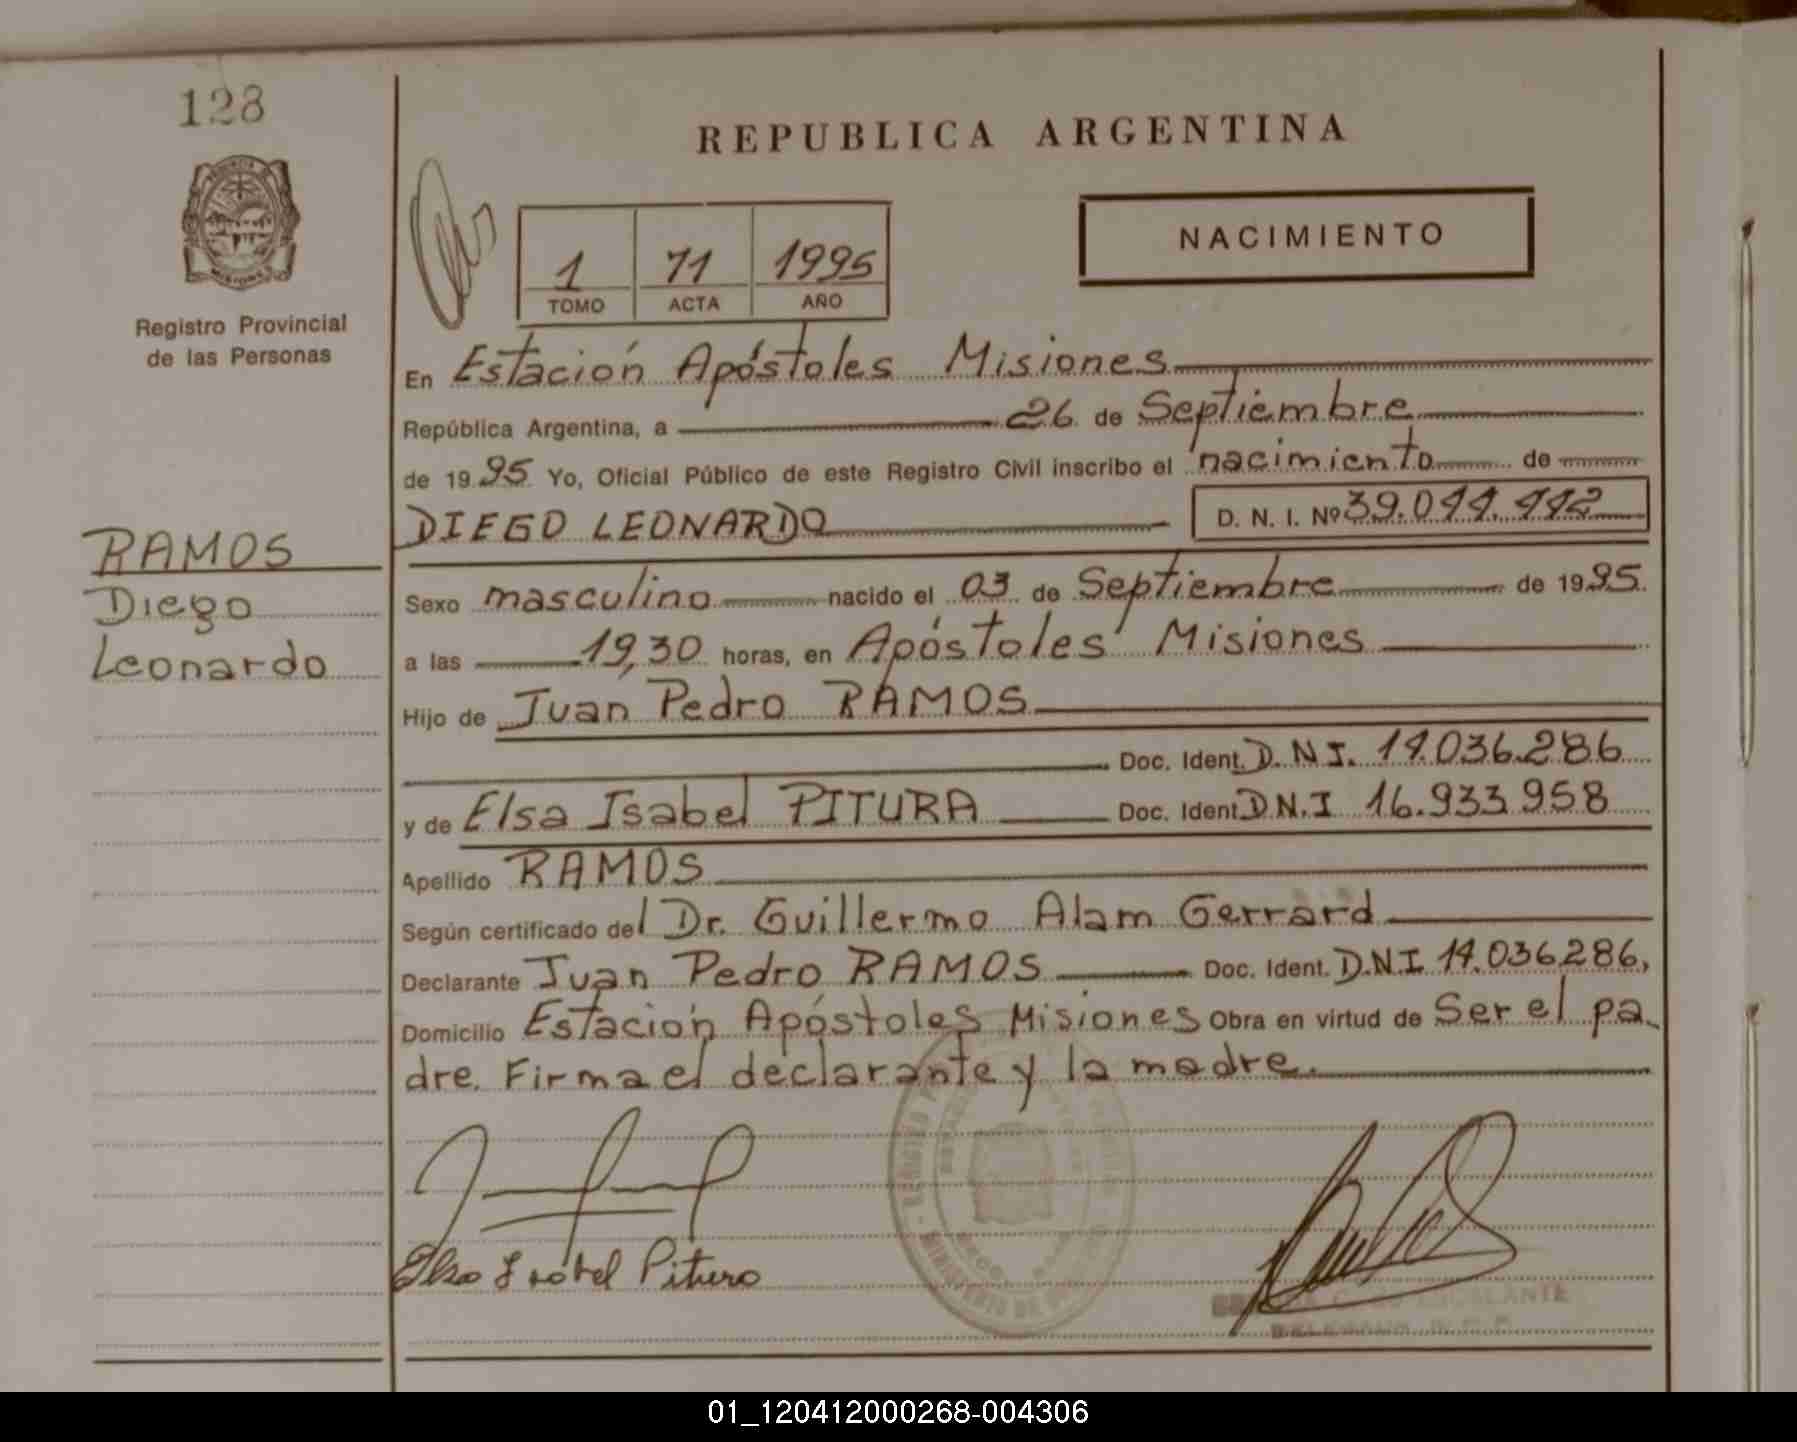 128
REPUBLICA ARGENTINA
NACIMIENTO
1 71 1995
TOMO ACTA AÑO
Registro Provincial
de las Personas
En Estación Apóstoles Misiones
República Argentina, a 26 de Septiembre
de 1995 Yo, Oficial Público de este Registro Civil inscribo el nacimiento de
DIEGO LEONARDO D. N. I. Nº 39.044.442
RAMOS
Diego
Leonardo
Sexo masculino nacido el 03 de Septiembre de 1995.
a las 19,30 horas, en Apóstoles Misiones
Hijo de Juan Pedro RAMOS
Doc. Ident. D.N.I. 14.036.286
y de Elsa Isabel PITURA Doc. Ident. D.N.I 16.933.958
Apellido RAMOS
Según certificado del Dr. Guillermo Alam Gerrard
Declarante Juan Pedro RAMOS Doc. Ident. D.N.I 14.036.286,
Domicilio Estación Apóstoles Misiones Obra en virtud de Ser el pa-
dre. Firma el declarante y la madre.
Elsa Isabel Pitura
ESCALANTE
01_120412000268-004306